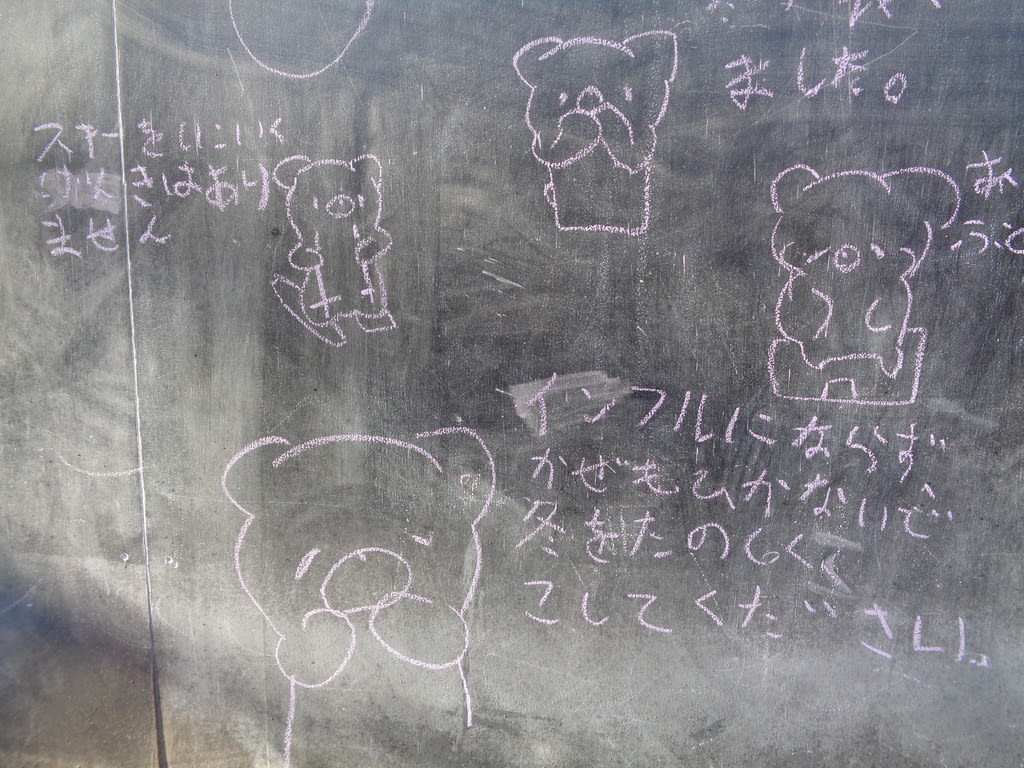 ました。
スキーをしにいく
きはあり
ません
インフルにならず
かぜもひかないで
冬をたのしく
すごしてください。